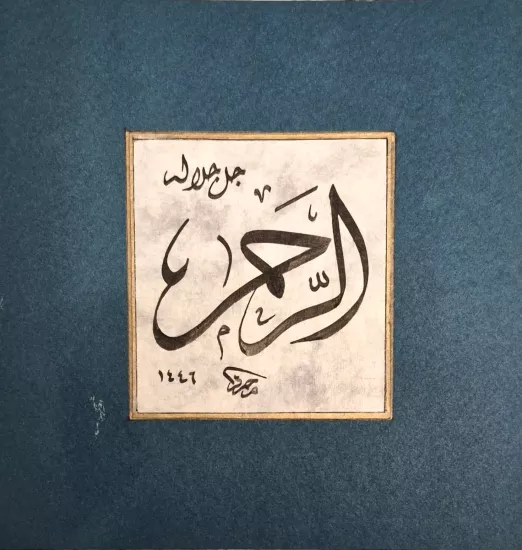 جل جلاله
الرَّحْمٰن
١٤٤٦